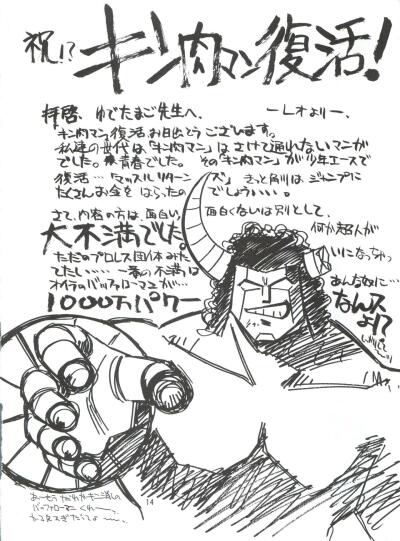 祝!? キン肉マン復活!
拝啓、ゆでたまご先生へ、 ーレオよりー、
「キン肉マン」復活、お目出とうございます。
私達の世代は、「キン肉マン」はさけて通れないマンガ
でした。青春でした。その「キン肉マン」が少年エースで
復活…「マッスルリターンズ」きっと角川はジャンプに
たくさんお金をはらったのでしょうい…。
さて、内容の方は、面白い、面白くないは別として、
大不満でした。
ただのプロレス団体みた
てたい……一番の不満は
オイラのバッファローマンが…
1000万パワー
何か超人が
いになっちゃっ
あんな奴に…
なんスよ!?
14